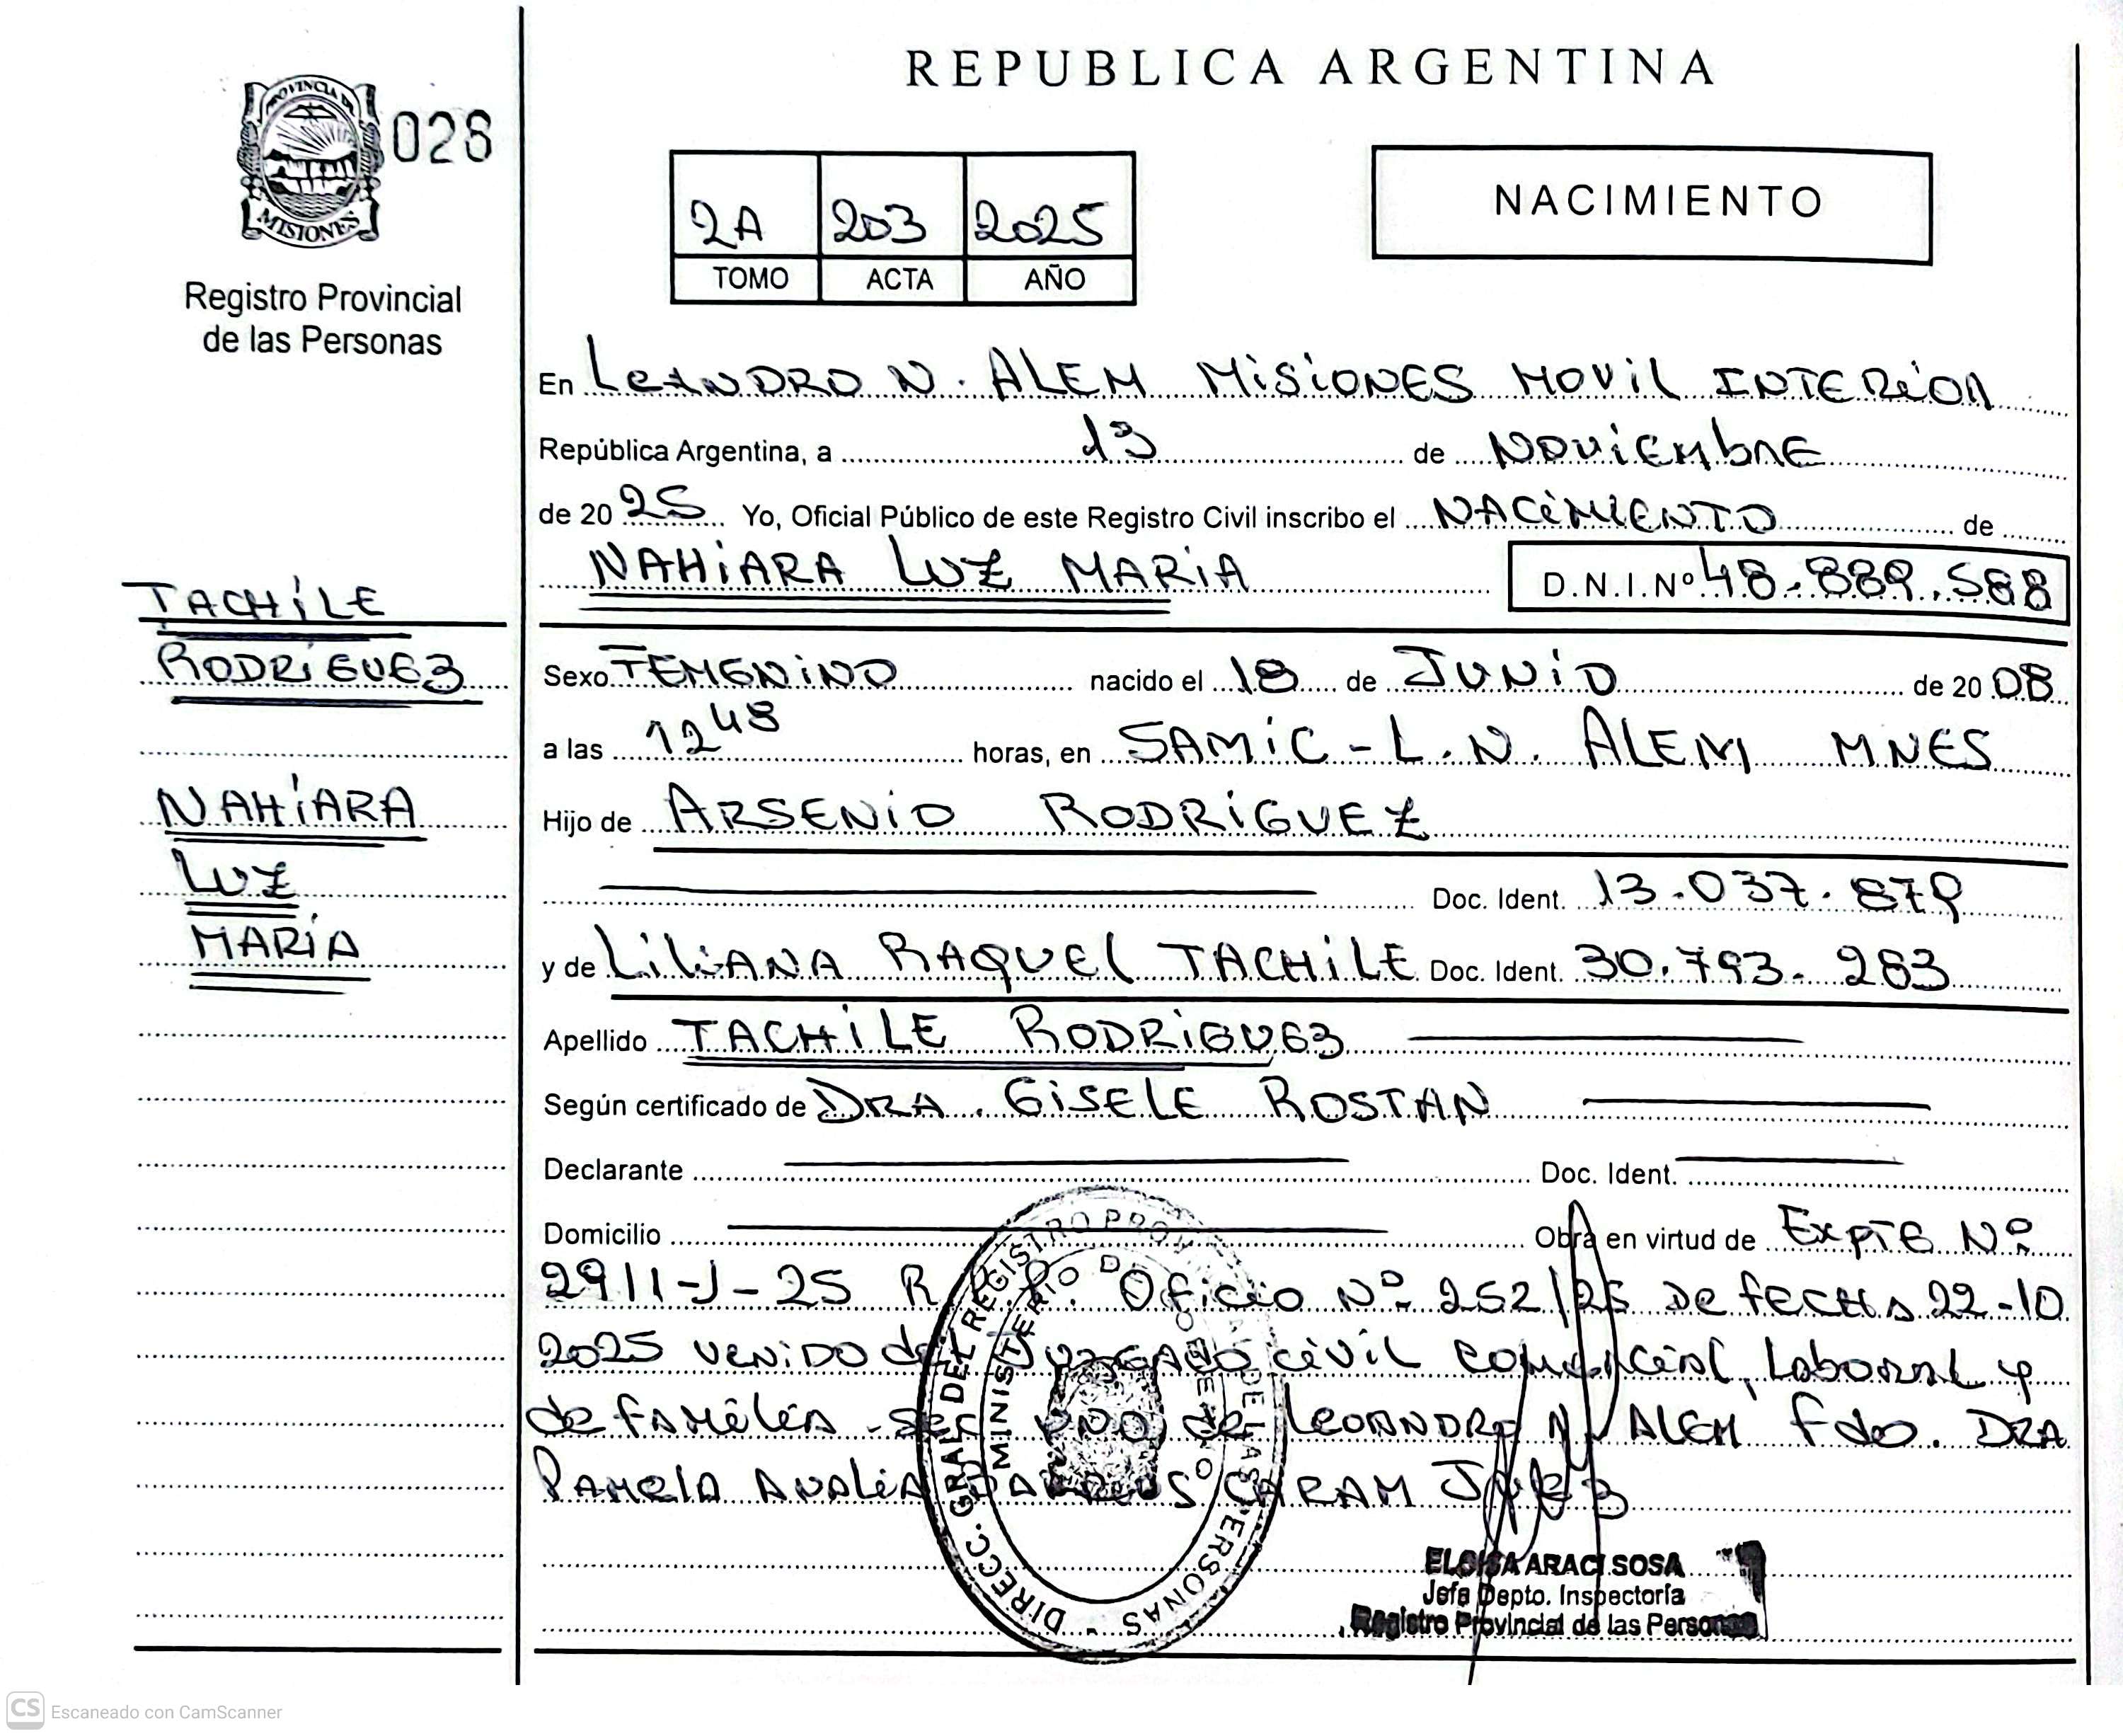 REPUBLICA ARGENTINA
PROVINCIA DE
MISIONES
028
Registro Provincial
de las Personas
NACIMIENTO
2A 203 2025
TOMO ACTA AÑO
En LeANDRO N. ALEM MISIONES MOVIL INTERIOR
República Argentina, a 13 de NOVIEMbRE
de 20 25 Yo, Oficial Público de este Registro Civil inscribo el NACIMIENTO de
NAHIARA LUZ MARIA D.N.I.Nº 48.889.588
TACHILE
RODRIGUEZ
NAHIARA
LUZ
MARIA
Sexo FEMENINO nacido el 18 de JUNIO de 20 08
a las 12 48 horas, en SAMIC - L. N. ALEM MNES
Hijo de ARSENIO RODRIGUEZ
Doc. Ident. 13.037.879
y de LILIANA RAQUEL TACHILE Doc. Ident. 30.793.283
Apellido TACHILE RODRIGUEZ
Según certificado de DRA. GISELE ROSTAN
Declarante Doc. Ident.
Domicilio Obra en virtud de EXPTE Nº
2911-J-25 R. Oficio Nº 252/25 De fECHA 22-10
2025 VENIDO del JUZGADO CIVIL COMERCIAL, LAbORAL y
de fAMILIA - SEC UNO de LEANDRO N ALEM fdo. DRA
PAMELA ANALIA CARAM JUEZ
DIRECC. GRAL. DEL REGISTRO PROV. DE LAS PERSONAS
MINISTERIO DE GOBIERNO
ELOISA ARACI SOSA
Jefa Depto. Inspectoría
Registro Provincial de las Personas
CS Escaneado con CamScanner